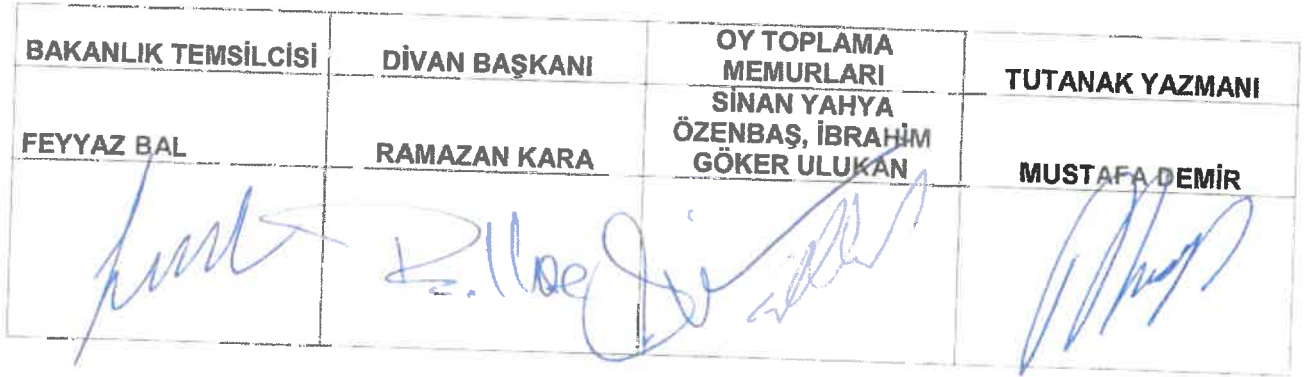 BAKANLIK TEMSİLCİSİ
DİVAN BAŞKANI
OY TOPLAMA
MEMURLARI
TUTANAK YAZMANI
FEYYAZ BAL
RAMAZAN KARA
SİNAN YAHYA
ÖZENBAŞ, İBRAHİM
GÖKER ULUKAN
MUSTAFA DEMİR